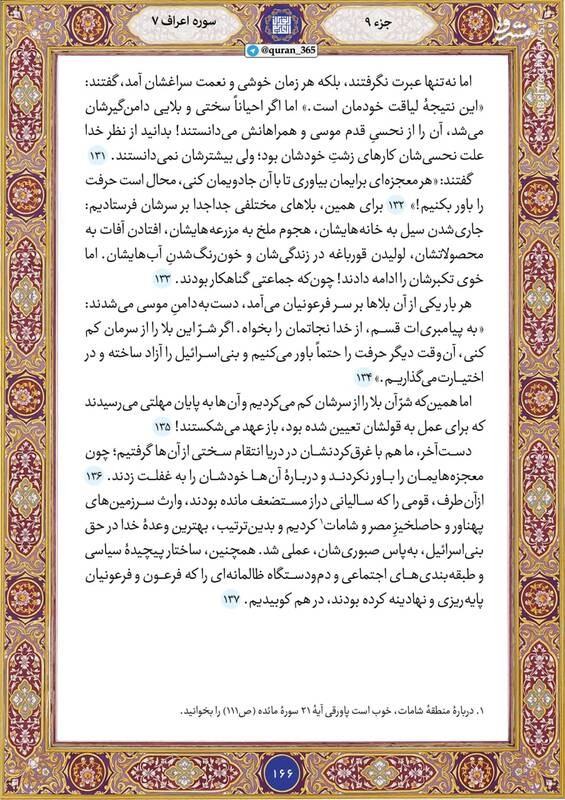 سوره اعراف ۷
جزء ۹
@quran_365
مشرق
اما نه‌تنها عبرت نگرفتند، بلکه هر زمان خوشی و نعمت سراغشان آمد، گفتند:
«این نتیجهٔ لیاقت خودمان است.» اما اگر احیاناً سختی و بلایی دامن‌گیرشان
می‌شد، آن را از نحسیِ قدم موسی و همراهانش می‌دانستند! بدانید از نظر خدا
علت نحسی‌شان کارهای زشتِ خودشان بود؛ ولی بیشترشان نمی‌دانستند. ۱۳۱
گفتند: «هر معجزه‌ای برایمان بیاوری تا با آن جادویمان کنی، محال است حرفت
را باور بکنیم!» ۱۳۲ برای همین، بلاهای مختلفی جداجدا بر سرشان فرستادیم:
جاری‌شدن سیل به خانه‌هایشان، هجوم ملخ به مزرعه‌هایشان، افتادن آفات به
محصولاتشان، لولیدن قورباغه در زندگی‌شان و خون‌رنگ‌شدنِ آب‌هایشان. اما
خوی تکبرشان را ادامه دادند! چون‌که جماعتی گناهکار بودند. ۱۳۳
هر بار یکی از آن بلاها بر سر فرعونیان می‌آمد، دست‌به‌دامنِ موسی می‌شدند:
«به پیامبری‌ات قسم، از خدا نجاتمان را بخواه. اگر شرّ این بلا را از سرمان کم
کنی، آن‌وقت دیگر حرفت را حتماً باور می‌کنیم و بنی‌اسرائیل را آزاد ساخته و در
اختیارت می‌گذاریم.» ۱۳۴
اما همین‌که شرّ آن بلا را از سرشان کم می‌کردیم و آن‌ها به پایان مهلتی می‌رسیدند
که برای عمل به قولشان تعیین شده بود، باز عهد می‌شکستند! ۱۳۵
دست‌آخر، ما هم با غرق‌کردنشان در دریا انتقام سختی از آن‌ها گرفتیم؛ چون
معجزه‌هایمان را باور نکردند و دربارهٔ آن‌ها خودشان را به غفلت زدند. ۱۳۶
ازآن‌طرف، قومی را که سالیانی دراز مستضعف مانده بودند، وارث سرزمین‌های
پهناور و حاصلخیزِ مصر و شامات۱ کردیم و بدین‌ترتیب، بهترین وعدهٔ خدا در حق
بنی‌اسرائیل، به‌پاس صبوری‌شان، عملی شد. همچنین، ساختار پیچیدهٔ سیاسی
و طبقه‌بندی‌های اجتماعی و دم‌ودستگاه ظالمانه‌ای را که فرعون و فرعونیان
پایه‌ریزی و نهادینه کرده بودند، در هم کوبیدیم. ۱۳۷
۱. دربارهٔ منطقهٔ شامات، خوب است پاورقی آیهٔ ۲۱ سورهٔ مائده (ص۱۱۱) را بخوانید.
۱۶۶